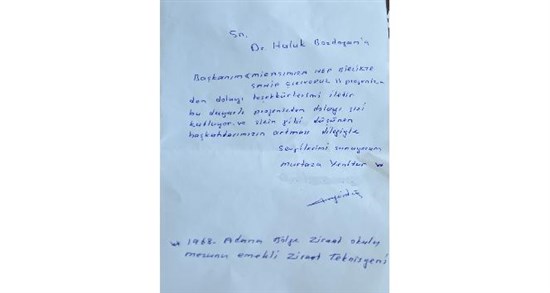 Sn.
Dr. Haluk Bozdoğan'a
Başkanım hep birlikte
projeniz
den dolayı teşekkürlerimi iletir
bu duyarlı projenizden dolayı sizi
kutluyor. ve sizin gibi düşünen
başkanlarımızın artması dileğiyle
sevgilerimi sunuyorum
Murtaza
1968. Adana Bölge Ziraat okulu
mezunu emekli Ziraat Teknisyeni